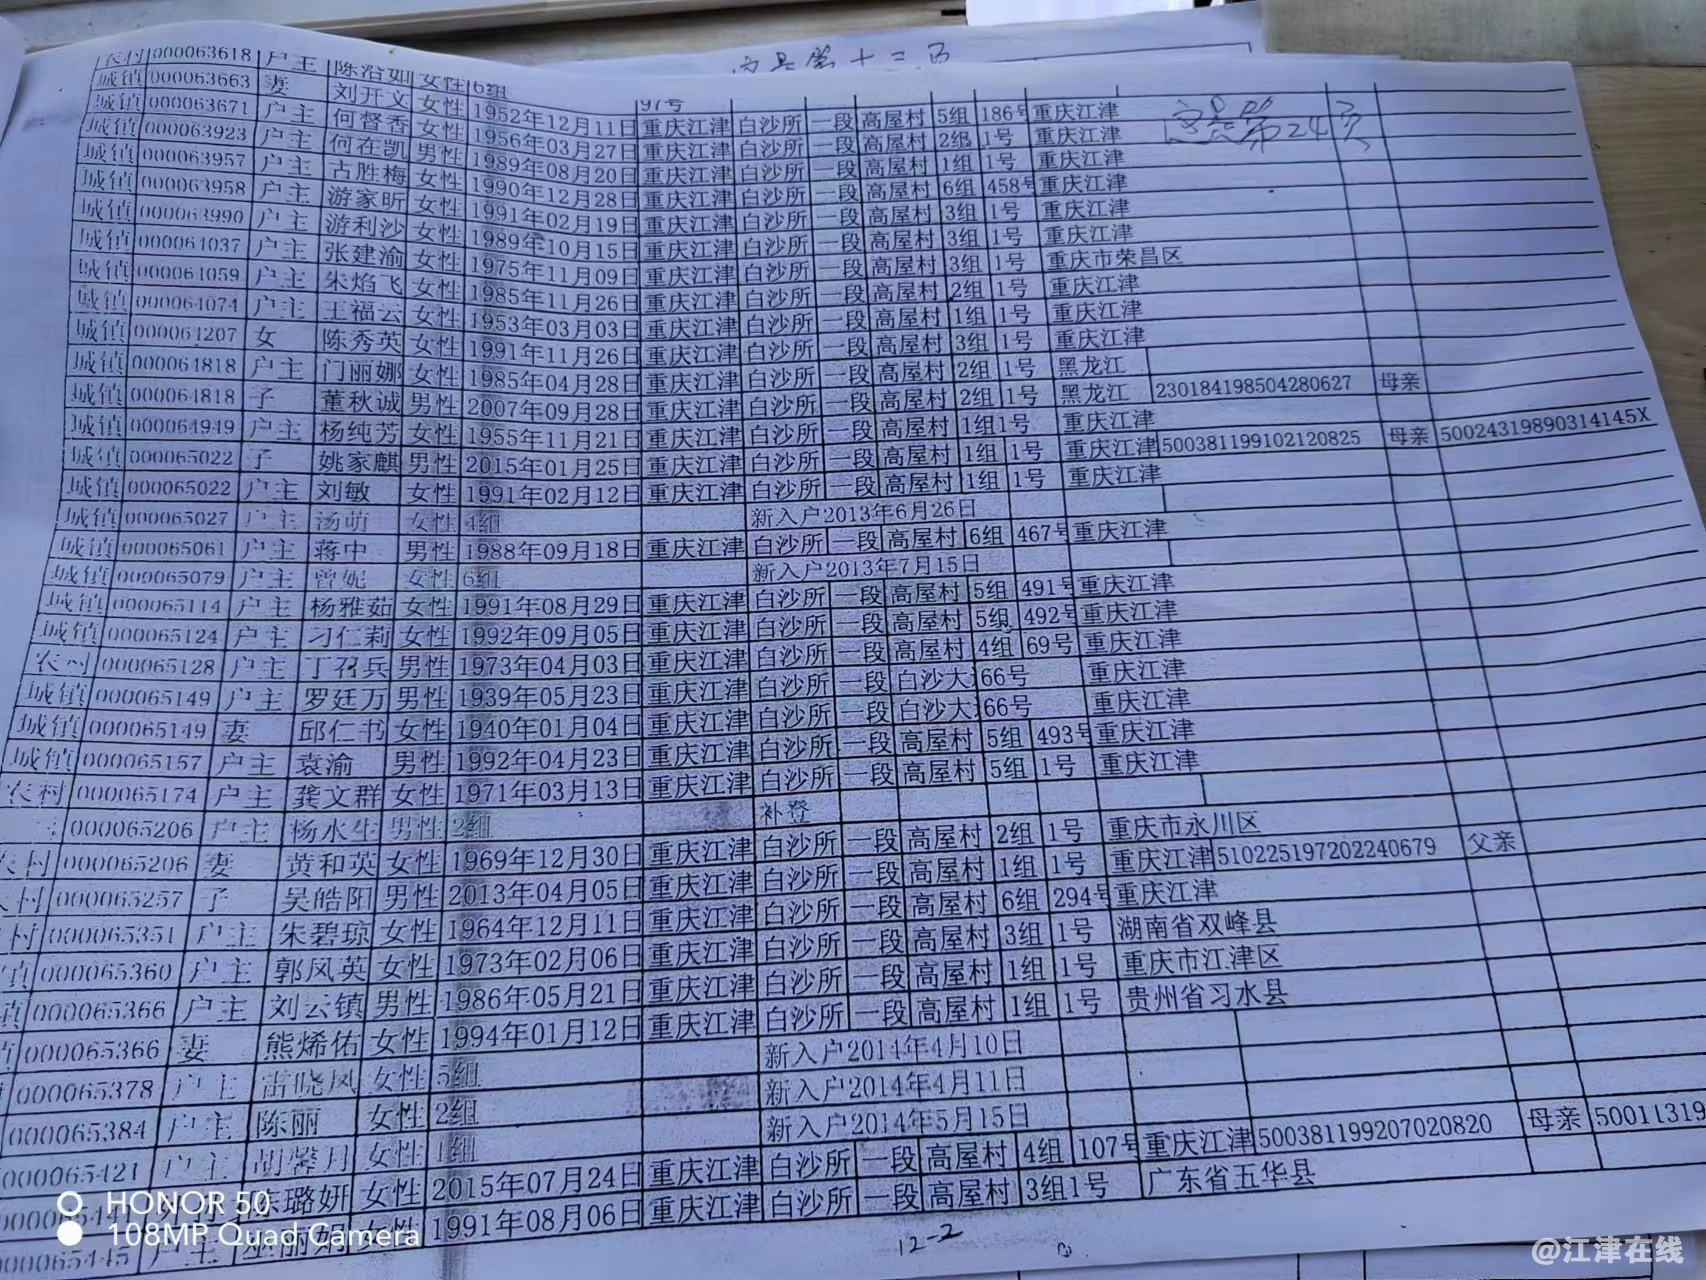 这是第24页
农村 000063618 户主 女性 6组 97号
城镇 000063663 妻 刘开文 女性 1952年12月11日 重庆江津 白沙所 一段 高屋村 5组 186号 重庆江津
城镇 000063671 户主 何督香 女性 1956年03月27日 重庆江津 白沙所 一段 高屋村 2组 1号 重庆江津
城镇 000063923 户主 何在凯 男性 1989年08月20日 重庆江津 白沙所 一段 高屋村 1组 1号 重庆江津
城镇 000063957 户主 古胜梅 女性 1990年12月28日 重庆江津 白沙所 一段 高屋村 6组 458号 重庆江津
城镇 000063958 户主 游家昕 女性 1991年02月19日 重庆江津 白沙所 一段 高屋村 3组 1号 重庆江津
城镇 000063990 户主 游利沙 女性 1989年10月15日 重庆江津 白沙所 一段 高屋村 3组 1号 重庆江津
城镇 000064037 户主 张建渝 女性 1975年11月09日 重庆江津 白沙所 一段 高屋村 3组 1号 重庆市荣昌区
城镇 000064059 户主 朱焰飞 女性 1985年11月26日 重庆江津 白沙所 一段 高屋村 2组 1号 重庆江津
城镇 000064074 户主 王福云 女性 1953年03月03日 重庆江津 白沙所 一段 高屋村 1组 1号 重庆江津
城镇 000064207 女 陈秀英 女性 1991年11月26日 重庆江津 白沙所 一段 高屋村 3组 1号 重庆江津
城镇 000064818 户主 门丽娜 女性 1985年04月28日 重庆江津 白沙所 一段 高屋村 2组 1号 黑龙江
城镇 000064818 子 董秋诚 男性 2007年09月28日 重庆江津 白沙所 一段 高屋村 2组 1号 黑龙江 230184198504280627 母亲
城镇 000064949 户主 杨纯芳 女性 1955年11月21日 重庆江津 白沙所 一段 高屋村 1组1号 重庆江津
城镇 000065022 子 姚家麒 男性 2015年01月25日 重庆江津 白沙所 一段 高屋村 1组 1号 重庆江津 500381199102120825 母亲 50024319890314145X
城镇 000065022 户主 刘敏 女性 1991年02月12日 重庆江津 白沙所 一段 高屋村 1组 1号 重庆江津
城镇 000065027 户主 汤萌 女性 4组 新入户2013年6月26日
城镇 000065061 户主 蒋中 男性 1988年09月18日 重庆江津 白沙所 一段 高屋村 6组 467号 重庆江津
城镇 000065079 户主 曾妮 女性 6组 新入户2013年7月15日
城镇 000065114 户主 杨雅茹 女性 1991年08月29日 重庆江津 白沙所 一段 高屋村 5组 491号 重庆江津
城镇 000065124 户主 刁仁莉 女性 1992年09月05日 重庆江津 白沙所 一段 高屋村 5组 492号 重庆江津
农村 000065128 户主 丁召兵 男性 1973年04月03日 重庆江津 白沙所 一段 高屋村 4组 69号 重庆江津
城镇 000065149 户主 罗廷万 男性 1939年05月23日 重庆江津 白沙所 一段 白沙大 66号 重庆江津
城镇 000065149 妻 邱仁书 女性 1940年01月04日 重庆江津 白沙所 一段 白沙大 66号 重庆江津
城镇 000065157 户主 袁渝 男性 1992年04月23日 重庆江津 白沙所 一段 高屋村 5组 493号 重庆江津
农村 000065174 户主 龚文群 女性 1971年03月13日 重庆江津 白沙所 一段 高屋村 5组 1号 重庆江津
000065206 户主 杨水生 男性 2组 补登
农村 000065206 妻 黄和英 女性 1969年12月30日 重庆江津 白沙所 一段 高屋村 2组 1号 重庆市永川区
村 000065257 子 吴皓阳 男性 2013年04月05日 重庆江津 白沙所 一段 高屋村 1组 1号 重庆江津 510225197202240679 父亲
村 000065351 户主 朱碧琼 女性 1964年12月11日 重庆江津 白沙所 一段 高屋村 6组 294号 重庆江津
镇 000065360 户主 郭凤英 女性 1973年02月06日 重庆江津 白沙所 一段 高屋村 3组 1号 湖南省双峰县
镇 000065366 户主 刘云镇 男性 1986年05月21日 重庆江津 白沙所 一段 高屋村 1组 1号 重庆市江津区
镇 000065366 妻 熊烯佑 女性 1994年01月12日 重庆江津 白沙所 一段 高屋村 1组 1号 贵州省习水县
000065378 户主 雷晓凤 女性 5组 新入户2014年4月10日
000065384 户主 陈丽 女性 2组 新入户2014年4月11日
000065421 户主 胡馨月 女性 1组 新入户2014年5月15日
璐妍 女性 2015年07月24日 重庆江津 白沙所 一段 高屋村 4组 107号 重庆江津 500381199207020820 母亲 50011319
000065445 户主 女性 1991年08月06日 重庆江津 白沙所 一段 高屋村 3组1号 广东省五华县
12-2
HONOR 50
108MP Quad Camera
@江津在线